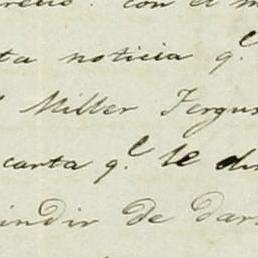 con el
ta noticia q.e
Miller Fergus
carta q.e le di
indir de dar